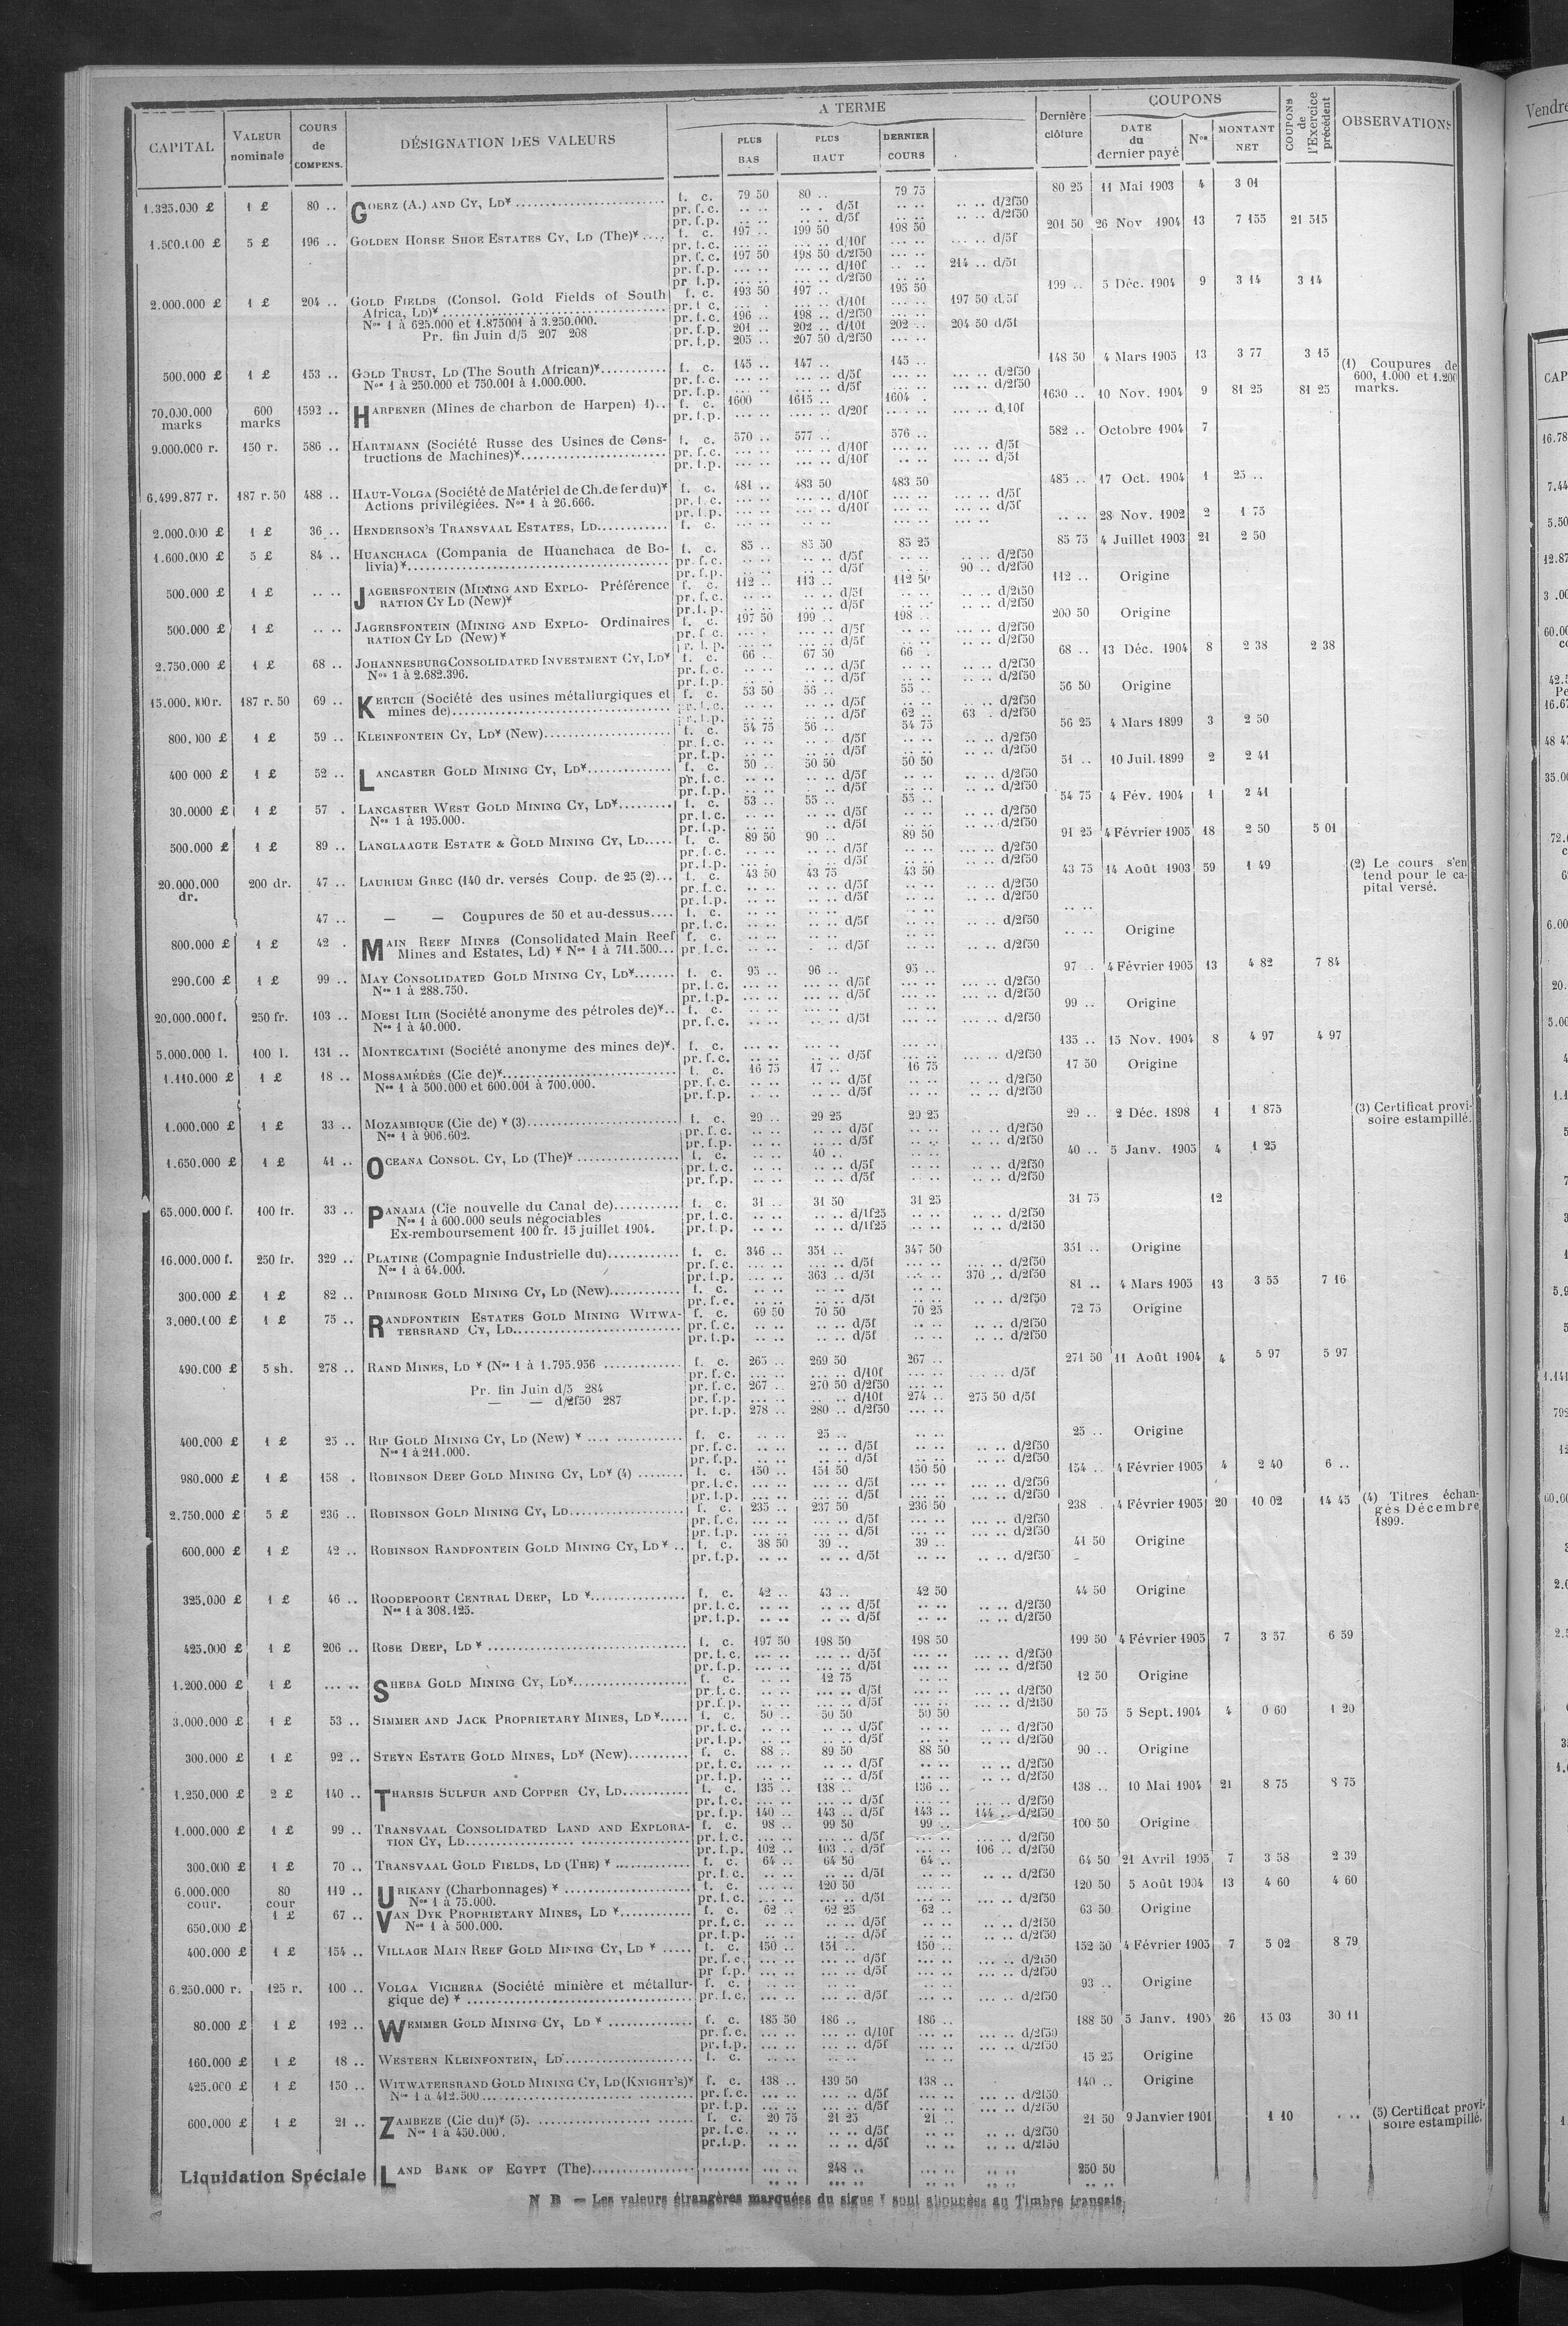 CAPITAL VALEUR nominale COURS de COMPENS. DÉSIGNATION DES VALEURS A TERME PLUS BAS PLUS HAUT DERNIER COURS Dernière clôture COUPONS DATE du dernier payé Nos MONTANT NET COUPONS de l'Exercice précédent OBSERVATIONS
1.325.000 £ 1 £ 80 .. GOERZ (A.) AND CY, LD* f. c. 79 50 80 .. 79 75 80 25 11 Mai 1903 4 3 01
pr. f. c. .. .. .. . d/5f .. .. .. .. d/2f50
pr. f. p. .. .. .. .. d/5f .. .. .. .. d/2f50
1.500.000 £ 5 £ 196 .. GOLDEN HORSE SHOE ESTATES CY, LD (The)* f. c. 197 .. 199 50 198 50 201 50 26 Nov 1904 13 7 155 21 515
pr. f. c. ... .. ... .. d/10f ... .. ... .. d/5f
pr. f. c. 197 50 198 50 d/2f50 ... ..
pr. f. p. ... .. ... .. d/10f .. .. 214 .. d/5f
pr. f. p. ... .. ... .. d/2f50 ... ..
2.000.000 £ 1 £ 204 .. GOLD FIELDS (Consol. Gold Fields of South f. c. 193 50 197 .. 195 50 199 .. 5 Déc. 1904 9 3 14 3 14
Africa, LD)* pr. f. c. ... .. ... .. d/10f ... .. 197 50 d/5f
Nos 1 à 625.000 et 1.875001 à 3.250.000. pr. f. c. 196 .. 198 .. d/2f50 ... ..
Pr. fin Juin d/5 207 208 pr. f. p. 201 .. 202 .. d/10f 202 .. 204 50 d/5f
pr. f. p. 205 .. 207 50 d/2f50 ... ..
500.000 £ 1 £ 153 .. GOLD TRUST, LD (The South African)* f. c. 145 .. 147 .. 145 .. 148 50 4 Mars 1905 13 3 77 3 15 (1) Coupures de
Nos 1 à 250.000 et 750.001 à 1.000.000. pr. f. c. ... .. ... .. d/5f ... .. ... .. d/2f50 600, 1.000 et 1.200
pr. f. p. ... .. ... .. d/5f ... .. ... .. d/2f50 marks.
70.000.000 marks 600 marks 1592 .. HARPENER (Mines de charbon de Harpen) 1).. f. c. 1600 1615 .. 1604 . 1630 .. 10 Nov. 1904 9 81 25 81 25
pr. f. p. .... .. .... .. d/20f .... .. .... .. d/10f
9.000.000 r. 150 r. 586 .. HARTMANN (Société Russe des Usines de Cons- f. c. 570 .. 577 .. 576 .. 582 .. Octobre 1904 7
tructions de Machines)* pr. f. c. ... .. ... .. d/10f .. .. ... .. d/5f
pr. f. p. ... .. ... .. d/10f .. .. ... .. d/5f
6.499.877 r. 187 r. 50 488 .. HAUT-VOLGA (Société de Matériel de Ch. de fer du)* f. c. 481 .. 483 50 483 50 485 .. 17 Oct. 1904 1 25 ..
Actions privilégiées. Nos 1 à 26.666. pr. f. c. ... .. ... .. d/10f ... .. ... .. d/5f
pr. f. p. ... .. ... .. d/10f ... .. ... .. d/5f
2.000.000 £ 1 £ 36 .. HENDERSON'S TRANSVAAL ESTATES, LD f. c. .. .. .. .. .. .. .. .. 28 Nov. 1902 2 1 75
1.600.000 £ 5 £ 84 .. HUANCHACA (Compania de Huanchaca de Bo- f. c. 85 .. 85 50 85 25 85 75 4 Juillet 1903 21 2 50
livia)* pr. f. c. .. .. .. .. d/5f .. .. .. .. d/2f50
pr. f. p. .. .. .. .. d/5f .. .. 90 .. d/2f50
500.000 £ 1 £ .. .. JAGERSFONTEIN (MINING AND EXPLO- Préférence f. c. 112 .. 113 .. 112 50 112 .. Origine
RATION CY LD (New)* pr. f. c. .. .. .. .. d/5f .. .. .. .. d/2f50
pr. f. p. .. .. .. .. d/5f .. .. .. .. d/2f50
500.000 £ 1 £ .. .. JAGERSFONTEIN (MINING AND EXPLO- Ordinaires f. c. 197 50 199 .. 198 .. 200 50 Origine
RATION CY LD (New)* pr. f. c. ... . ... .. d/5f .. .. ... .. d/2f50
pr. f. p. ... .. ... .. d/5f .. .. ... .. d/2f50
2.750.000 £ 1 £ 68 .. JOHANNESBURG CONSOLIDATED INVESTMENT CY, LD* f. c. 66 .. 67 50 66 .. 68 .. 13 Déc. 1904 8 2 38 2 38
Nos 1 à 2.682.396. pr. f. c. .. .. .. .. d/5f .. .. ... .. d/2f50
pr. f. p. .. .. .. .. d/5f .. .. .. .. d/2f50
15.000.000 r. 187 r. 50 69 .. KERTCH (Société des usines métallurgiques et f. c. 53 50 56 .. 55 .. 56 50 Origine
mines de) pr. f. c. .. .. .. .. d/5f .. .. .. .. d/2f50
pr. f. p. .. .. .. .. d/5f 62 .. 63 . d/2f50
800.000 £ 1 £ 59 .. KLEINFONTEIN CY, LD* (New) f. c. 54 75 56 .. 54 75 56 25 4 Mars 1899 3 2 50
pr. f. c. .. .. .. .. d/5f .. .. .. .. d/2f50
pr. f. p. .. .. .. .. d/5f .. .. .. .. d/2f50
400 000 £ 1 £ 52 .. LANCASTER GOLD MINING CY, LD* f. c. 50 .. 50 50 50 50 51 .. 10 Juil. 1899 2 2 41
pr. f. c. .. .. .. .. d/5f .. .. .. .. d/2f50
pr. f. p. .. .. .. .. d/5f .. .. .. .. d/2f50
30.0000 £ 1 £ 57 . LANCASTER WEST GOLD MINING CY, LD* f. c. 53 .. 55 .. 55 .. 54 75 4 Fév. 1904 1 2 41
Nos 1 à 195.000. pr. f. c. .. .. .. .. d/5f .. .. .. .. d/2f50
pr. f. p. .. .. .. .. d/5f .. .. .. .. d/2f50
500.000 £ 1 £ 89 .. LANGLAAGTE ESTATE & GOLD MINING CY, LD f. c. 89 50 90 .. 89 50 91 25 4 Février 1905 18 2 50 5 01
pr. f. c. .. .. .. .. d/5f .. .. .. .. d/2f50
pr. f. p. .. .. .. .. d/5f .. .. .. .. d/2f50
20.000.000 dr. 200 dr. 47 .. LAURIUM GREC (140 dr. versés Coup. de 25 (2)... f. c. 43 50 43 75 43 50 43 75 14 Août 1903 59 1 49 (2) Le cours s'en
pr. f. c. .. .. .. .. d/5f .. .. .. .. d/2f50 tend pour le ca-
pr. f. p. .. .. .. .. d/5f .. .. .. .. d/2f50 pital versé.
47 .. — — Coupures de 50 et au-dessus f. c. .. .. .. .. .. .. .. ..
pr. f. c. .. .. .. .. d/5f .. .. .. .. d/2f50
800.000 £ 1 £ 42 . MAIN REEF MINES (Consolidated Main Reef f. c. .. .. .. .. .. .. .. .. Origine
Mines and Estates, Ld) * Nos 1 à 711.500... pr. f. c. .. .. .. .. d/5f .. .. .. .. d/2f50
290.000 £ 1 £ 99 .. MAY CONSOLIDATED GOLD MINING CY, LD* f. c. 95 .. 96 .. 95 .. 97 .. 4 Février 1905 13 4 82 7 84
Nos 1 à 288.750. pr. f. c. ... .. ... .. d/5f ... .. ... .. d/2f50
pr. f. p. ... .. ... .. d/5f ... .. ... .. d/2f50
20.000.000 f. 250 fr. 103 .. MOESI ILIR (Société anonyme des pétroles de)* f. c. .. .. .. .. .. .. 99 .. Origine
Nos 1 à 40.000. pr. f. c. .. .. .. .. d/5f ... .. ... .. d/2f50
5.000.000 l. 100 l. 131 .. MONTECATINI (Société anonyme des mines de)* f. c. ... .. ... .. ... .. 135 .. 15 Nov. 1904 8 4 97 4 97
pr. f. c. ... .. .. .. d/5f ... .. ... .. d/2f50
1.110.000 £ 1 £ 18 .. MOSSAMÉDÈS (Cie de)* f. c. 16 75 17 .. 16 75 17 50 Origine
Nos 1 à 500.000 et 600.001 à 700.000. pr. f. c. .. .. .. .. d/5f .. .. .. .. d/2f50
pr. f. p. .. .. .. .. d/5f .. .. .. .. d/2f50
1.000.000 £ 1 £ 33 .. MOZAMBIQUE (Cie de) * (3) f. c. 29 .. 29 25 29 25 29 .. 2 Déc. 1898 1 1 875 (3) Certificat provi-
Nos 1 à 906.602. pr. f. c. .. .. .. .. d/5f .. .. .. .. d/2f50 soire estampillé.
pr. f. p. .. .. .. .. d/5f .. .. .. .. d/2f50
1.650.000 £ 1 £ 41 .. OCEANA CONSOL. CY, LD (The)* f. c. .. .. 40 .. .. .. 40 .. 5 Janv. 1905 4 1 25
pr. f. c. .. .. .. .. d/5f .. .. .. .. d/2f50
pr. f. p. .. .. .. .. d/5f .. .. .. .. d/2f50
65.000.000 f. 100 fr. 33 .. PANAMA (Cie nouvelle du Canal de) f. c. 31 .. 31 50 31 25 31 75 12
Nos 1 à 600.000 seuls négociables pr. f. c. .. .. .. .. d/1f25 .. .. .. .. d/2f50
Ex-remboursement 100 fr. 15 juillet 1904. pr. f. p. .. .. .. .. d/1f25 .. .. .. .. d/2f50
16.000.000 f. 250 fr. 329 .. PLATINE (Compagnie Industrielle du) f. c. 346 .. 351 .. 347 50 351 .. Origine
Nos 1 à 64.000. pr. f. c. ... .. ... .. d/5f ... .. ... .. d/2f50
pr. f. p. ... .. 363 .. d/5f ... .. 370 .. d/2f50
300.000 £ 1 £ 82 .. PRIMROSE GOLD MINING CY, LD (New) f. c. .. .. .. .. .. .. 81 .. 4 Mars 1905 13 3 55 7 16
pr. f. c. .. .. .. .. d/5f .. .. .. .. d/2f50
3.000.000 £ 1 £ 75 .. RANDFONTEIN ESTATES GOLD MINING WITWA- f. c. 69 50 70 50 70 25 72 75 Origine
TERSRAND CY, LD pr. f. c. .. .. .. .. d/5f .. .. .. .. d/2f50
pr. f. p. .. .. .. .. d/5f .. .. .. .. d/2f50
490.000 £ 5 sh. 278 .. RAND MINES, LD * (Nos 1 à 1.795.956 f. c. 265 .. 269 50 267 .. 271 50 11 Août 1904 4 5 97 5 97
pr. f. c. ... .. ... .. d/10f ... .. ... .. d/5f
Pr. fin Juin d/5 284 pr. f. c. 267 .. 270 50 d/2f50 ... ..
— — d/2f50 287 pr. f. p. ... .. .. .. d/10f 274 .. 275 50 d/5f
pr. f. p. 278 .. 280 .. d/2f50 ... ..
400.000 £ 1 £ 25 .. RIP GOLD MINING CY, LD (New) * f. c. .. .. 25 .. .. .. 25 .. Origine
Nos 1 à 211.000. pr. f. c. .. .. .. .. d/5f .. .. .. .. d/2f50
pr. f. p. .. .. .. .. d/5f .. .. .. .. d/2f50
980.000 £ 1 £ 158 . ROBINSON DEEP GOLD MINING CY, LD* (4) f. c. 150 .. 151 50 150 50 154 .. 4 Février 1905 4 2 40 6 ..
pr. f. c. ... .. ... .. d/5f ... .. ... .. d/2f50
pr. f. p. ... .. ... .. d/5f ... .. ... .. d/2f50
2.750.000 £ 5 £ 236 .. ROBINSON GOLD MINING CY, LD f. c. 235 .. 237 50 236 50 238 . 4 Février 1905 20 10 02 14 45 (4) Titres échan-
pr. f. c. ... .. ... .. d/5f ... .. ... .. d/2f50 gés Décembre
pr. f. p. ... .. ... .. d/5f ... .. ... .. d/2f50 1899.
600.000 £ 1 £ 42 .. ROBINSON RANDFONTEIN GOLD MINING CY, LD* f. c. 38 50 39 .. 39 .. 41 50 Origine
pr. f. p. .. .. .. .. d/5f .. .. .. .. d/2f50
325.000 £ 1 £ 46 .. ROODEPOORT CENTRAL DEEP, LD * f. c. 42 .. 43 .. 42 50 44 50 Origine
Nos 1 à 308.125. pr. f. c. .. .. .. .. d/5f .. .. .. .. d/2f50
pr. f. p. .. .. .. .. d/5f .. .. .. .. d/2f50
425.000 £ 1 £ 206 .. ROSE DEEP, LD * f. c. 197 50 198 50 198 50 199 50 4 Février 1905 7 3 57 6 59
pr. f. c. ... .. ... .. d/5f ... .. ... .. d/2f50
pr. f. p. ... .. ... .. d/5f ... .. ... .. d/2f50
1.200.000 £ 1 £ ... .. SHEBA GOLD MINING CY, LD* f. c. .. .. 12 75 .. .. 12 50 Origine
pr. f. c. .. .. ... .. d/5f .. .. ... .. d/2f50
pr. f. p. .. .. ... .. d/5f .. .. ... .. d/2f50
3.000.000 £ 1 £ 53 .. SIMMER AND JACK PROPRIETARY MINES, LD* f. c. 50 .. 50 50 50 50 50 75 5 Sept. 1904 4 0 60 1 20
pr. f. c. .. .. .. .. d/5f .. .. .. .. d/2f50
pr. f. p. .. .. .. .. d/5f .. .. .. .. d/2f50
300.000 £ 1 £ 92 .. STEYN ESTATE GOLD MINES, LD* (New) f. c. 88 .. 89 50 88 50 90 .. Origine
pr. f. c. ... .. .. .. d/5f .. .. .. .. d/2f50
pr. f. p. .. .. .. .. d/5f .. .. .. .. d/2f50
1.250.000 £ 2 £ 140 .. THARSIS SULFUR AND COPPER CY, LD f. c. 135 .. 138 .. 136 .. 138 .. 10 Mai 1904 21 8 75 8 75
pr. f. c. ... .. ... .. d/5f ... .. ... .. d/2f50
pr. f. p. 140 .. 143 .. d/5f 143 .. 144 .. d/2f50
1.000.000 £ 1 £ 99 .. TRANSVAAL CONSOLIDATED LAND AND EXPLORA- f. c. 98 .. 99 50 99 .. 100 50 Origine
TION CY, LD pr. f. c. ... .. ... .. d/5f ... .. ... .. d/2f50
pr. f. p. 102 .. 103 .. d/5f ... .. 106 .. d/2f50
300.000 £ 1 £ 70 .. TRANSVAAL GOLD FIELDS, LD (THE) * f. c. 64 .. 64 50 64 .. 64 50 21 Avril 1905 7 3 58 2 39
pr. f. c. ... .. ... .. d/5f ... .. .. .. d/2f50
6.000.000 cour. 80 cour 119 .. URIKANY (Charbonnages) * f. c. ... .. 120 50 ... .. 120 50 5 Août 1904 13 4 60 4 60
Nos 1 à 75.000. pr. f. c. ... .. ... .. d/5f ... .. ... .. d/2f50
650.000 £ 1 £ 67 .. VAN DYK PROPRIETARY MINES, LD * f. c. 62 .. 62 25 62 .. 63 50 Origine
Nos 1 à 500.000. pr. f. c. .. .. .. .. d/5f .. .. .. .. d/2f50
pr. f. p. .. .. .. .. d/5f .. .. .. .. d/2f50
400.000 £ 1 £ 154 .. VILLAGE MAIN REEF GOLD MINING CY, LD * f. c. 150 .. 151 .. 150 .. 152 50 4 Février 1905 7 5 02 8 79
pr. f. c. ... .. ... .. d/5f ... .. ... .. d/2f50
pr. f. p. ... .. ... .. d/5f ... .. ... .. d/2f50
6.250.000 r. 125 r. 100 .. VOLGA VICHERA (Société minière et métallur- f. c. .. .. .. .. .. .. 93 .. Origine
gique de) * pr. f. c. ... .. ... .. d/5f ... .. ... .. d/2f50
80.000 £ 1 £ 192 .. WEMMER GOLD MINING CY, LD * f. c. 185 50 186 .. 186 .. 188 50 5 Janv. 1905 26 15 03 30 11
pr. f. c. ... .. ... .. d/10f ... .. ... .. d/2f50
pr. f. p. ... .. ... .. d/5f ... .. ... .. d/2f50
160.000 £ 1 £ 18 .. WESTERN KLEINFONTEIN, LD f. c. .. .. .. .. .. .. 15 25 Origine
425.000 £ 1 £ 150 .. WITWATERSRAND GOLD MINING CY, LD (KNIGHT'S)* f. c. 138 .. 139 50 138 .. 140 .. Origine
Nos 1 à 412.500 pr. f. c. ... .. ... .. d/5f ... .. ... .. d/2f50
pr. f. p. ... .. ... .. d/5f ... .. ... .. d/2f50
600.000 £ 1 £ 21 .. ZAMBEZE (Cie du)* (5). f. c. 20 75 21 25 21 .. 21 50 9 Janvier 1901 1 10 .. .. (5) Certificat provi-
Nos 1 à 450.000. pr. f. c. .. .. .. .. d/5f .. .. .. .. d/2f50 soire estampillé.
pr. f. p. .. .. .. .. d/5f .. .. .. .. d/2f50
Liquidation Spéciale LAND BANK OF EGYPT (The) ... .. 248 .. ... .. .. .. 250 50
N B — Les valeurs étrangères marquées du signe * sont abonnées au Timbre français
Vendre
CAP